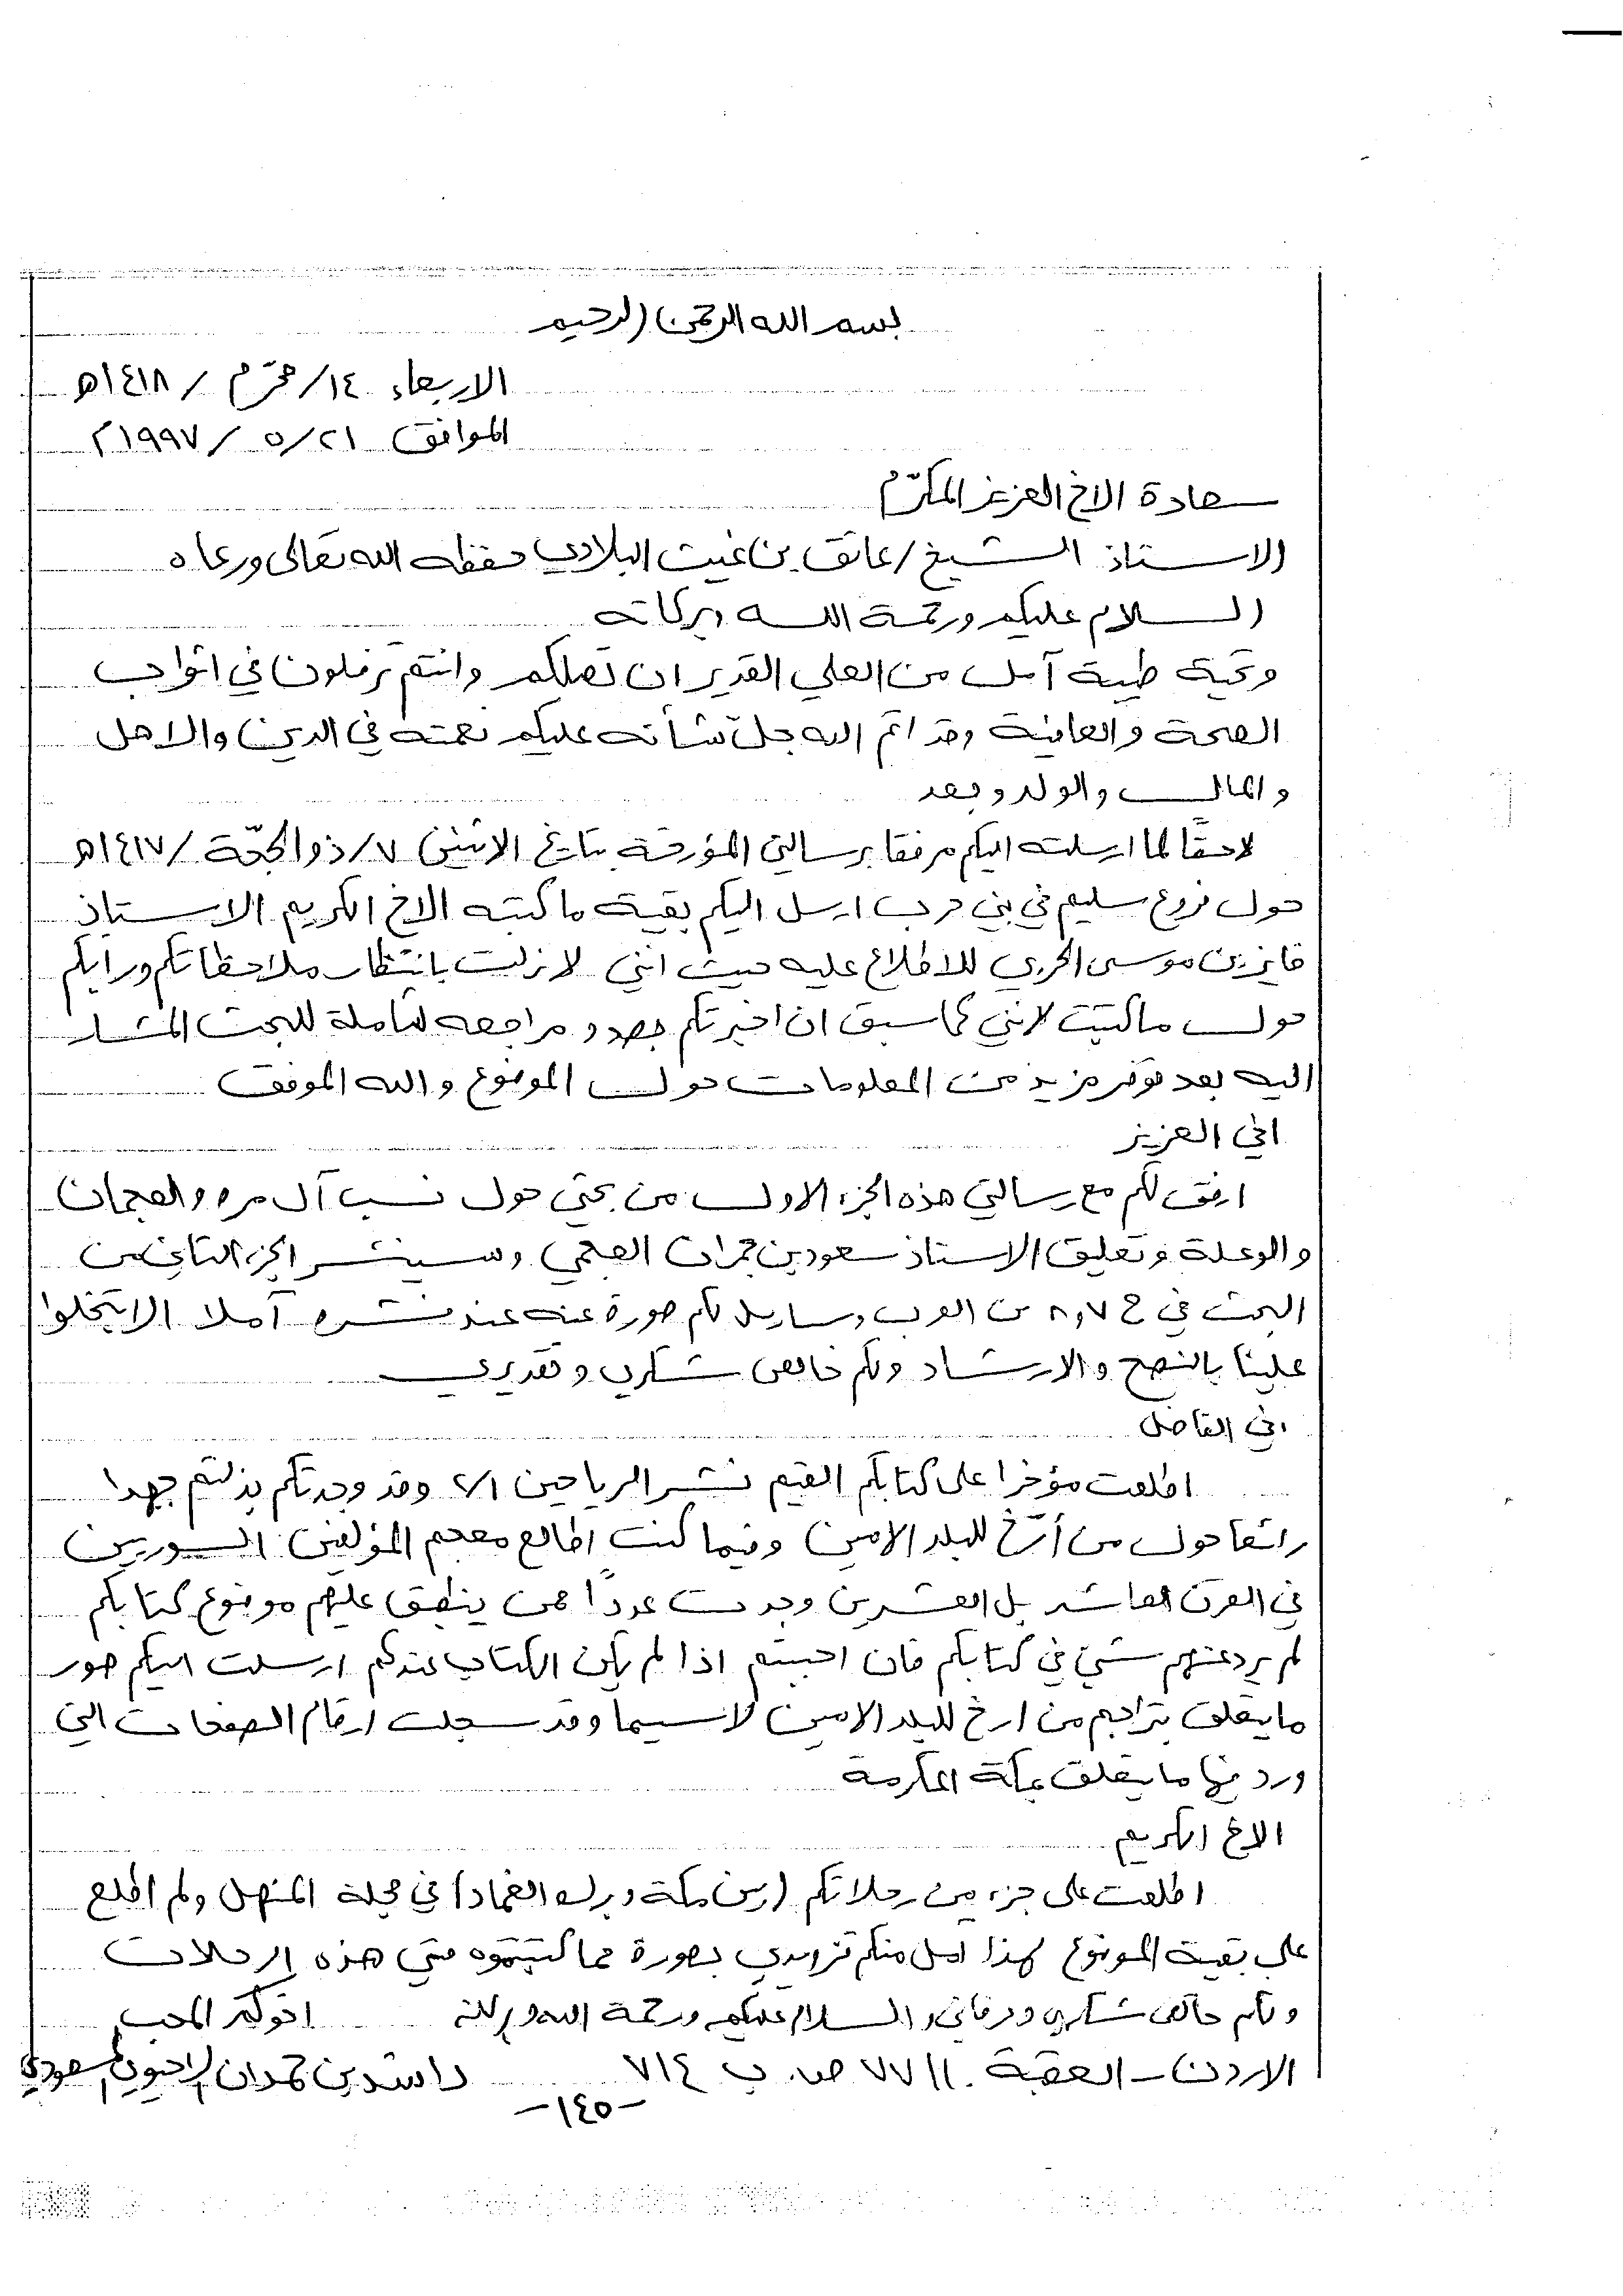 بسم الله الرحمن الرحيم
الاربعاء ١٤/محرّم / ١٤١٨هـ
الموافق ٢١/٥/١٩٩٧م
سعادة الاخ العزيز المكرّم
الاستاذ الشيخ / عاتق بن غيث البلادي حفظه الله تعالى ورعاه
السلام عليكم ورحمة الله وبركاته
وتحية طيبة آمل من العلي القدير ان تصلكم وانتم ترفلون في اثواب
الصحة والعافية وقد اتم الله جلّ شأنه عليكم نعمته في الدين والاهل
والمال والولد وبعد
لاحقًا لما ارسلته اليكم مرفقا برسالتي المؤرخة بتاريخ الاثنين ٧/ذو الحجّة/١٤١٧هـ
حول فروع سليم في بني حرب ارسل اليكم بقية ما كتبه الاخ الكريم الاستاذ
فايز بن موسى الحربي للاطلاع عليه حيث انني لا زلت بانتظار ملاحظاتكم ورايكم
حول ما كتبت لانني كما سبق ان اخبرتكم بصدد مراجعه شاملة للبحث المشار
اليه بعد توفر مزيد من المعلومات حول الموضوع والله الموفق
اخي العزيز
ارفق لكم مع رسالتي هذه الجزء الاول من بحثي حول نسب آل مره والعجمان
والوعلة وتعليق الاستاذ سعود بن حمران العجمي وسينشر الجزء الثاني من
البحث في ج ٨,٧ من العرب وسارسل لكم صورة عنه عند نشره آملا الا تبخلوا
علينا بالنصح والارشاد ولكم خالص شكري وتقديري
اخي الفاضل
اطلعت مؤخرا على كتابكم القيم نشر الرياحين ٢/١ وقد وجدتكم بذلتم جهدا
رائعا حول من أرّخ للبلد الامين وفيما كنت اطالع معجم المؤلفين السوريين
في القرن العاشر بل العشرين وجدت عددًا ممن ينطبق عليهم موضوع كتابكم
لم يرد عنهم شيئ في كتابكم فان احببتم اذا لم يكن الكتاب عندكم ارسلت اليكم صور
ما يتعلق بتراجم من ارخ للبلد الامين لا سيما وقد سجلت ارقام الصفحات التي
ورد فيها ما يتعلق بمكة المكرمة
الاخ الكريم
اطلعت على جزء من رحلاتكم (بين مكة وبرك الغماد) في مجلة المنهل ولم اطلع
على بقية الموضوع لهذا امل منكم تزويدي بصورة مما كتبتموه عن هذه الرحلات
ولكم خالص شكري وعرفاني والسلام عليكم ورحمة الله وبركاته اخوكم المحب
الاردن - العقبة ٧٧١١٠ ص.ب ٧١٤ راشد بن حمدان الاحيوي المسعودي
-١٤٥-